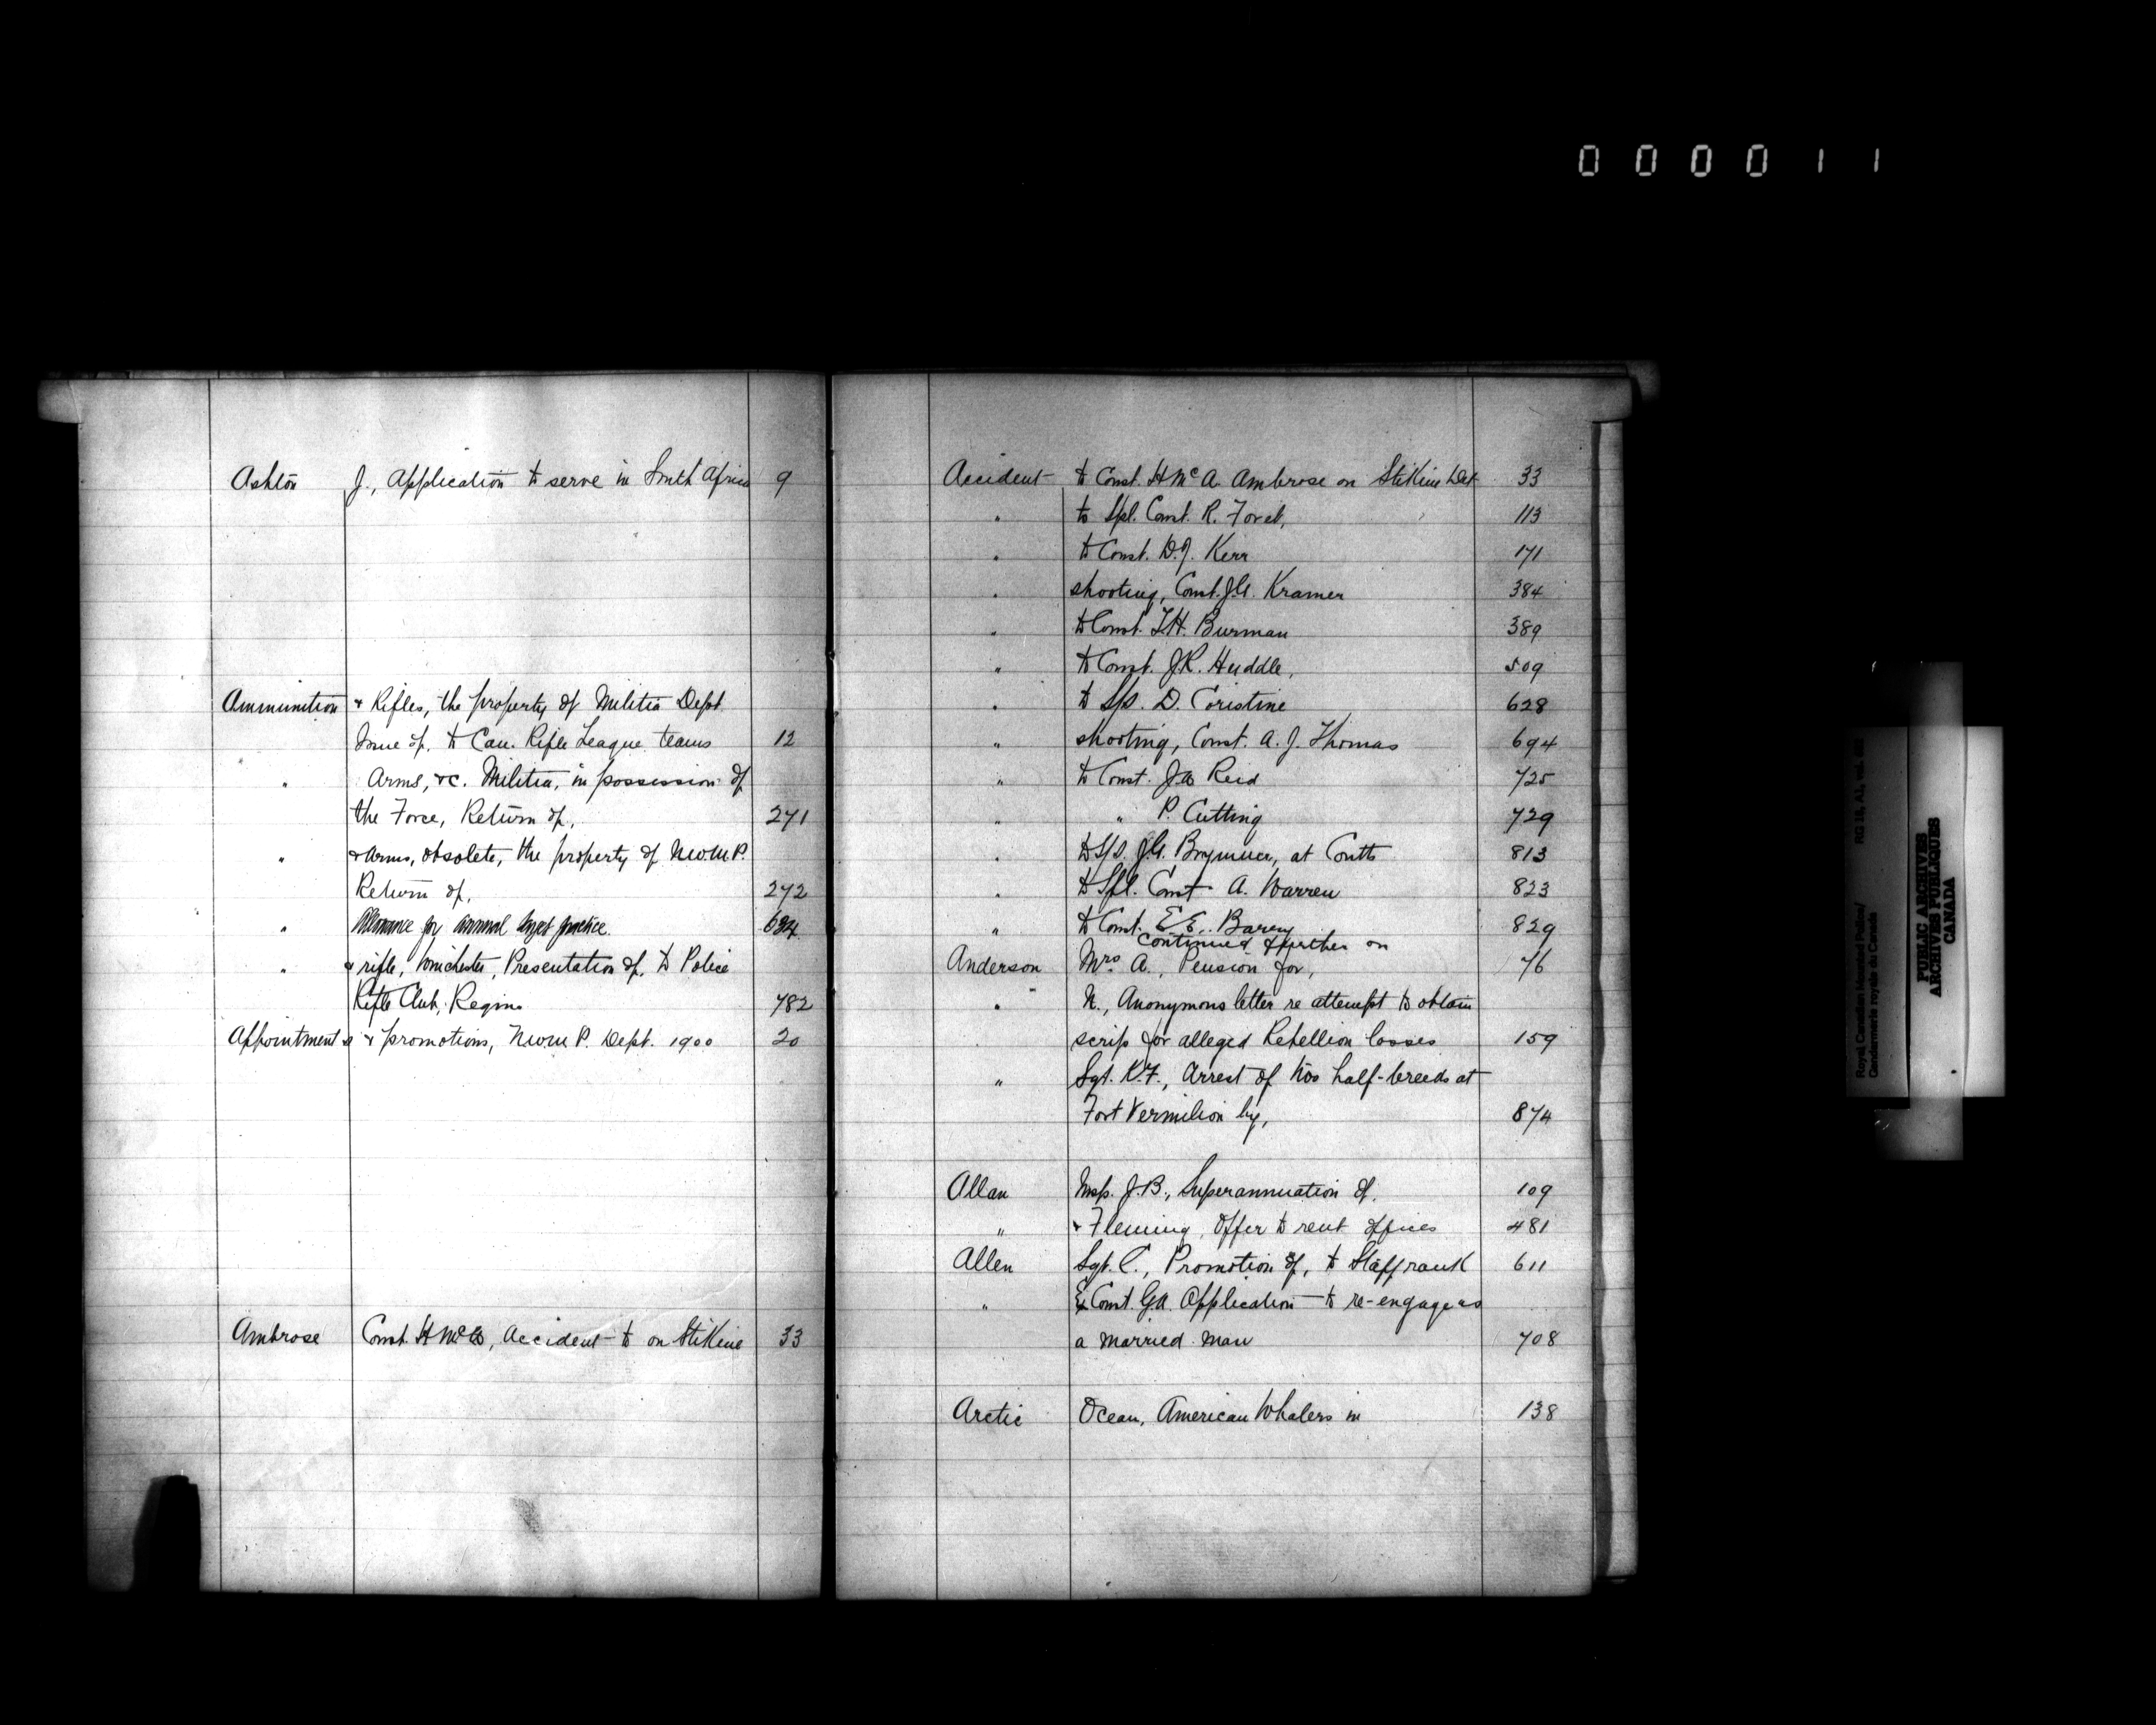 000011
Ashton J., Application to serve in South Africa 9
Ammunition & Rifles, the property of Militia Dept
Issue of, to Can. Rifle League teams 12
" Arms, &c. Militia, in possession of
the Force, Return of, 271
" & Arms, obsolete, the property of N.W.M.P.
Return of, 272
" Allowance for annual target practice 634
" & rifle, Winchester, Presentation of, to Police
Rifle Club, Regina 782
Appointments & promotions, N.W.M.P. Dept. 1900 20
Ambrose Const. H McA, Accident to on Stikine 33
Accident to Const. H McA. Ambrose on Stikine Det 33
" to Spl. Const. R. Foret, 113
" to Const. D.J. Kerr 171
" shooting, Const. J.A. Kramer 384
" to Const. T.H. Burman 389
" to Const. J.R. Huddle, 509
" to S/S. D. Coristine 628
" shooting, Const. A. J. Thomas 694
" to Const. J.A. Reid 725
" " P. Cutting 729
" to S/S. J.G. at Coutts 813
" to Spl. Const A. Warren 823
" to Const. E. E. Barery 829
continued further on
Anderson Mrs A., Pension for, 76
" N., Anonymous letter re attempt to obtain
scrip for alleged Rebellion losses 159
" Sgt. K.F., Arrest of two half-breeds at
Fort Vermilion by, 874
Allan Insp. J.B., Superannuation of, 109
" & Fleming, Offer to rent offices 481
Allen Sgt. C., Promotion of, to Staff rank 611
" Ex Const. G.A. Application to re-engage as
a married man 708
Arctic Ocean, American Whalers in 138
Royal Canadian Mounted Police/
Gendarmerie royale du Canada
RG 18, A1, vol.
PUBLIC ARCHIVES
ARCHIVES PUBLIQUES
CANADA